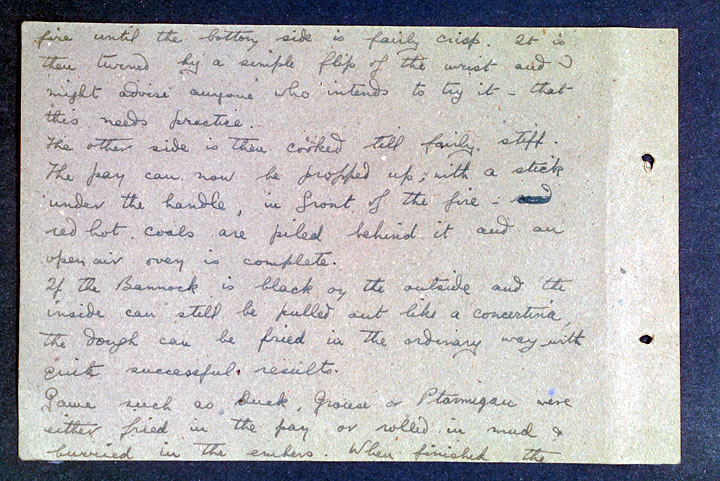 fire until the bottom side is fairly crisp. It is
then turned by a simple flip of the wrist and I
might advise anyone who intends to try it - that
this needs practice.
The other side is then cooked till fairly stiff.
The pan can now be propped up, with a stick
under the handle, in front of the fire -
red hot coals are piled behind it and an
open air oven is complete.
If the Bannock is black on the outside and the
inside can still be pulled out like a concertina,
the dough can be fried in the ordinary way with
quite successful results.
Game such as Duck, Grouse or Ptarmigan were
either fried in the pan or rolled in mud &
burried in the embers. When finished the